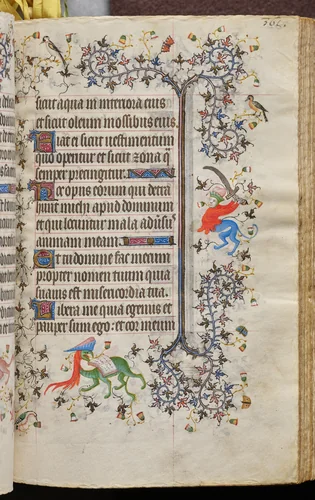 162.
sicut aqua in interiora eius
et sicut oleum in ossibus eius
Fiat ei sicut vestimentum
quo operitur et sicut zona q
semper precingitur
Hec opus eorum qui detra
hunt michi apud dominum
et qui locuntur mala adversus
animam meam
Et tu domine fac mecum
propter nomen tuum quia
suavis est misericordia tua
Libera me quia egenus et
pauper sum ego : et cor meum